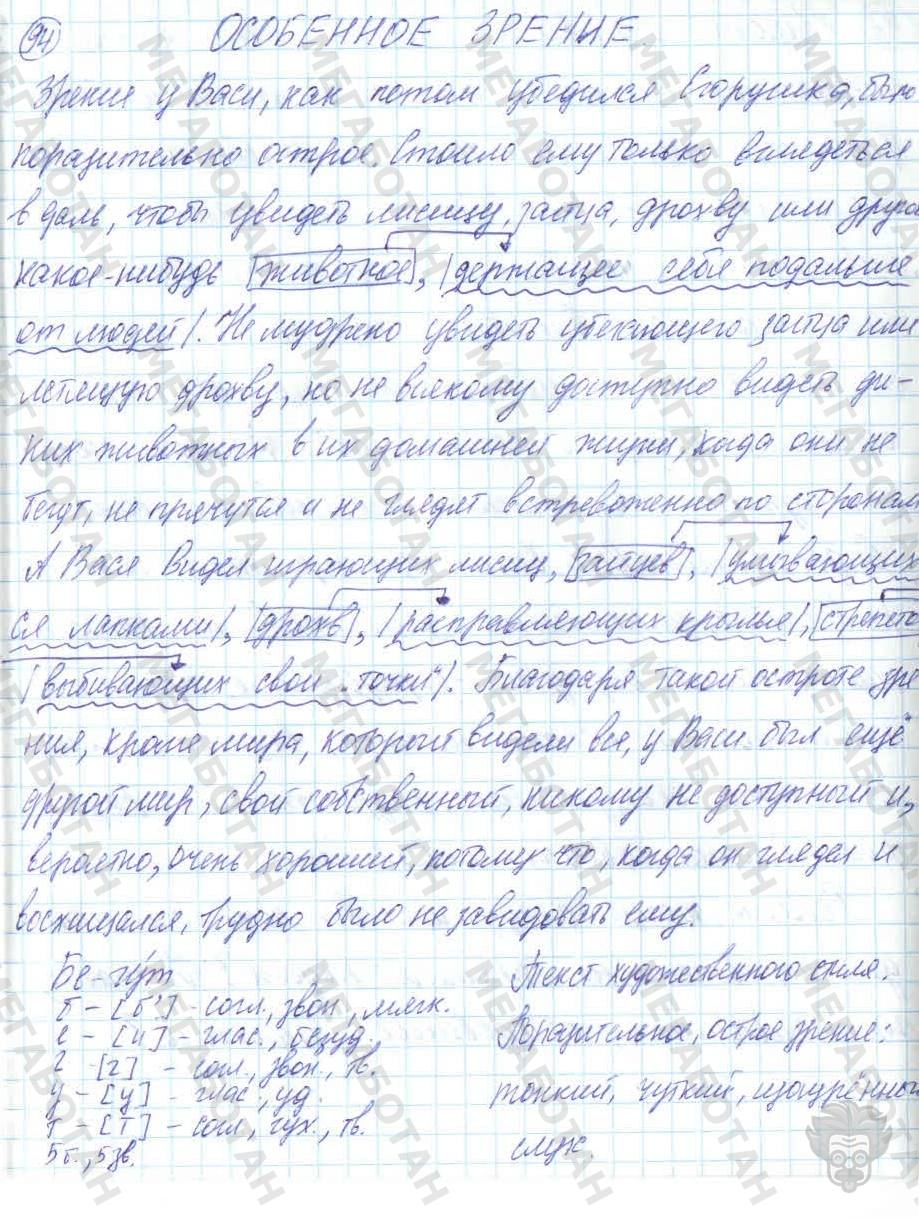 94
ОСОБЕННОЕ ЗРЕНИЕ
Зрение у Васи, как потом убедился Егорушка, было
поразительно острое. Стоило ему только вглядеться
в даль, чтобы увидеть лисицу, зайца, дрохву или другое
какое-нибудь [животное], |держащее себя подальше
от людей|. Не мудрено увидеть убегающего зайца или
летящую дрохву, но не всякому доступно видеть ди-
ких животных в их домашней жизни, когда они не
бегут, не прячутся и не глядят встревоженно по сторонам.
А Вася видел играющих лисиц, [зайцев], |умывающих
ся лапками|, [дрохв], |расправляющих крылья|, [стрепето
|выбивающих свои „точки"|. Благодаря такой остроте зре
ния, кроме мира, который видели все, у Васи был ещё
другой мир, свой собственный, никому не доступный и,
вероятно, очень хороший, потому что, когда он глядел и
восхищался, трудно было не завидовать ему.
Бе-гут
б – [б'] – согл., звон., мягк.
е – [и] – глас., безуд.
г – [г] – согл., звон., тв.
у – [у] – глас., уд.
т – [т] – согл., глух., тв.
5 б., 5 зв.
Текст художественного стиля.
Поразительное, острое зрение;
тонкий, чуткий, изощрённый
слух.
МЕГАБОТАН